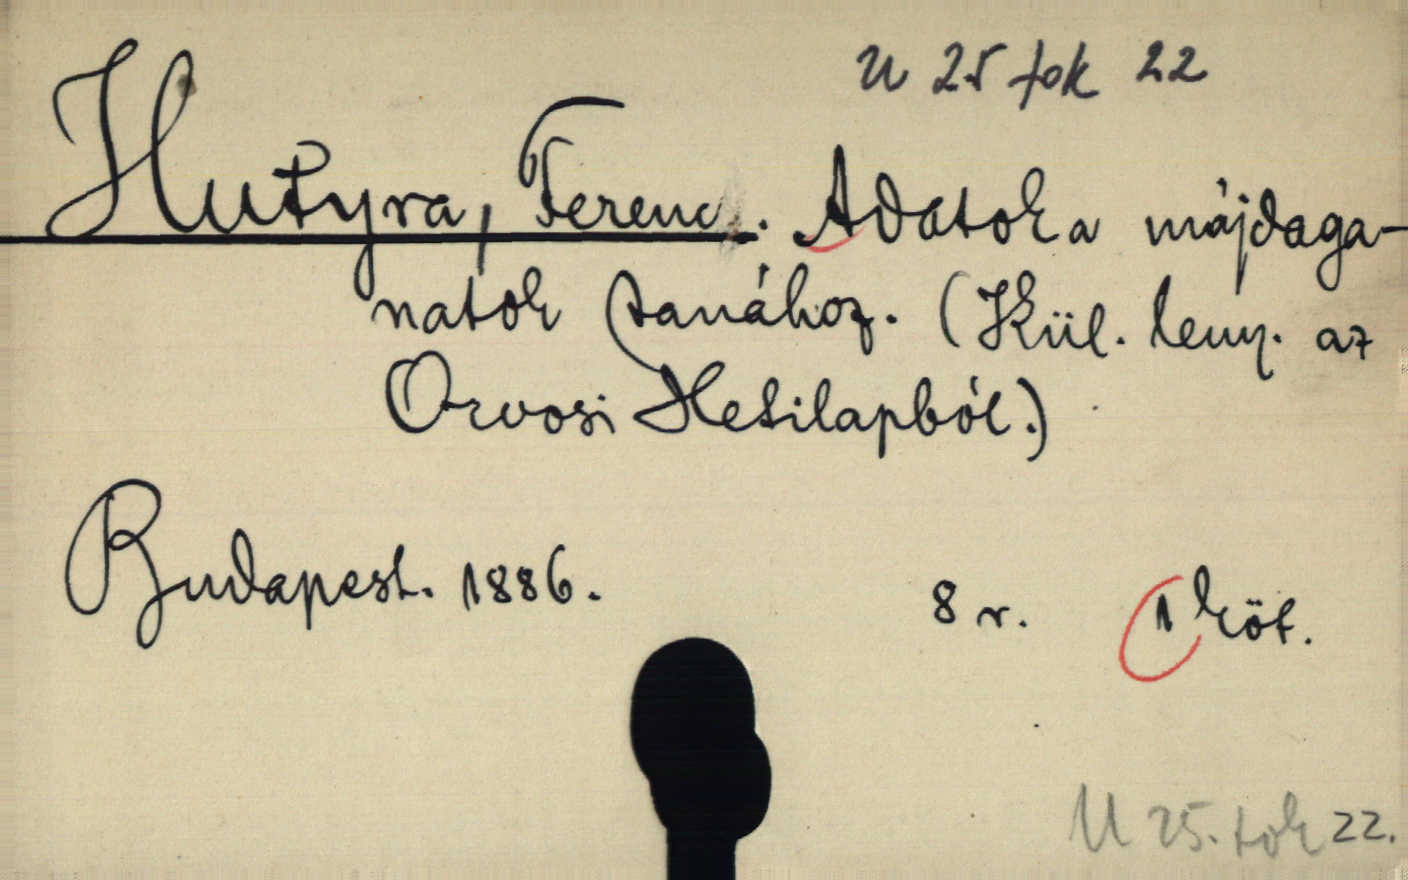 U 25 tok 22
Hutyra, Ferenc. Adatok a májdaga-
natok tanához. (Kül. leny. az
Orvosi Hetilapból.)
Budapest. 1886. 8 r. 1 köt.
U 25. tok 22.